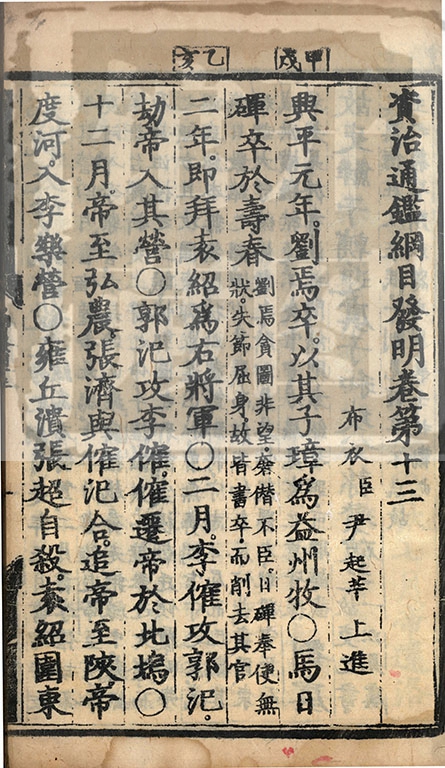 甲戌
乙亥
資治通鑑綱目發明卷第十三
布衣臣尹起莘上進
興平元年。劉焉卒。以其子璋爲益州牧〇馬日
磾卒於壽春
劉焉貪圖非望。僭不臣。日磾奉使無
狀。失節屈身。故皆書卒。而削去其官
二年。即拜袁紹爲右將軍〇二月。李傕攻郭汜。
劫帝入其營〇郭汜攻李傕。傕遷帝於北塢〇
十二月。帝至弘農。張濟與傕汜合。追帝至陜。帝
度河。入李樂營〇雍丘潰。張超自殺。袁紹圍東